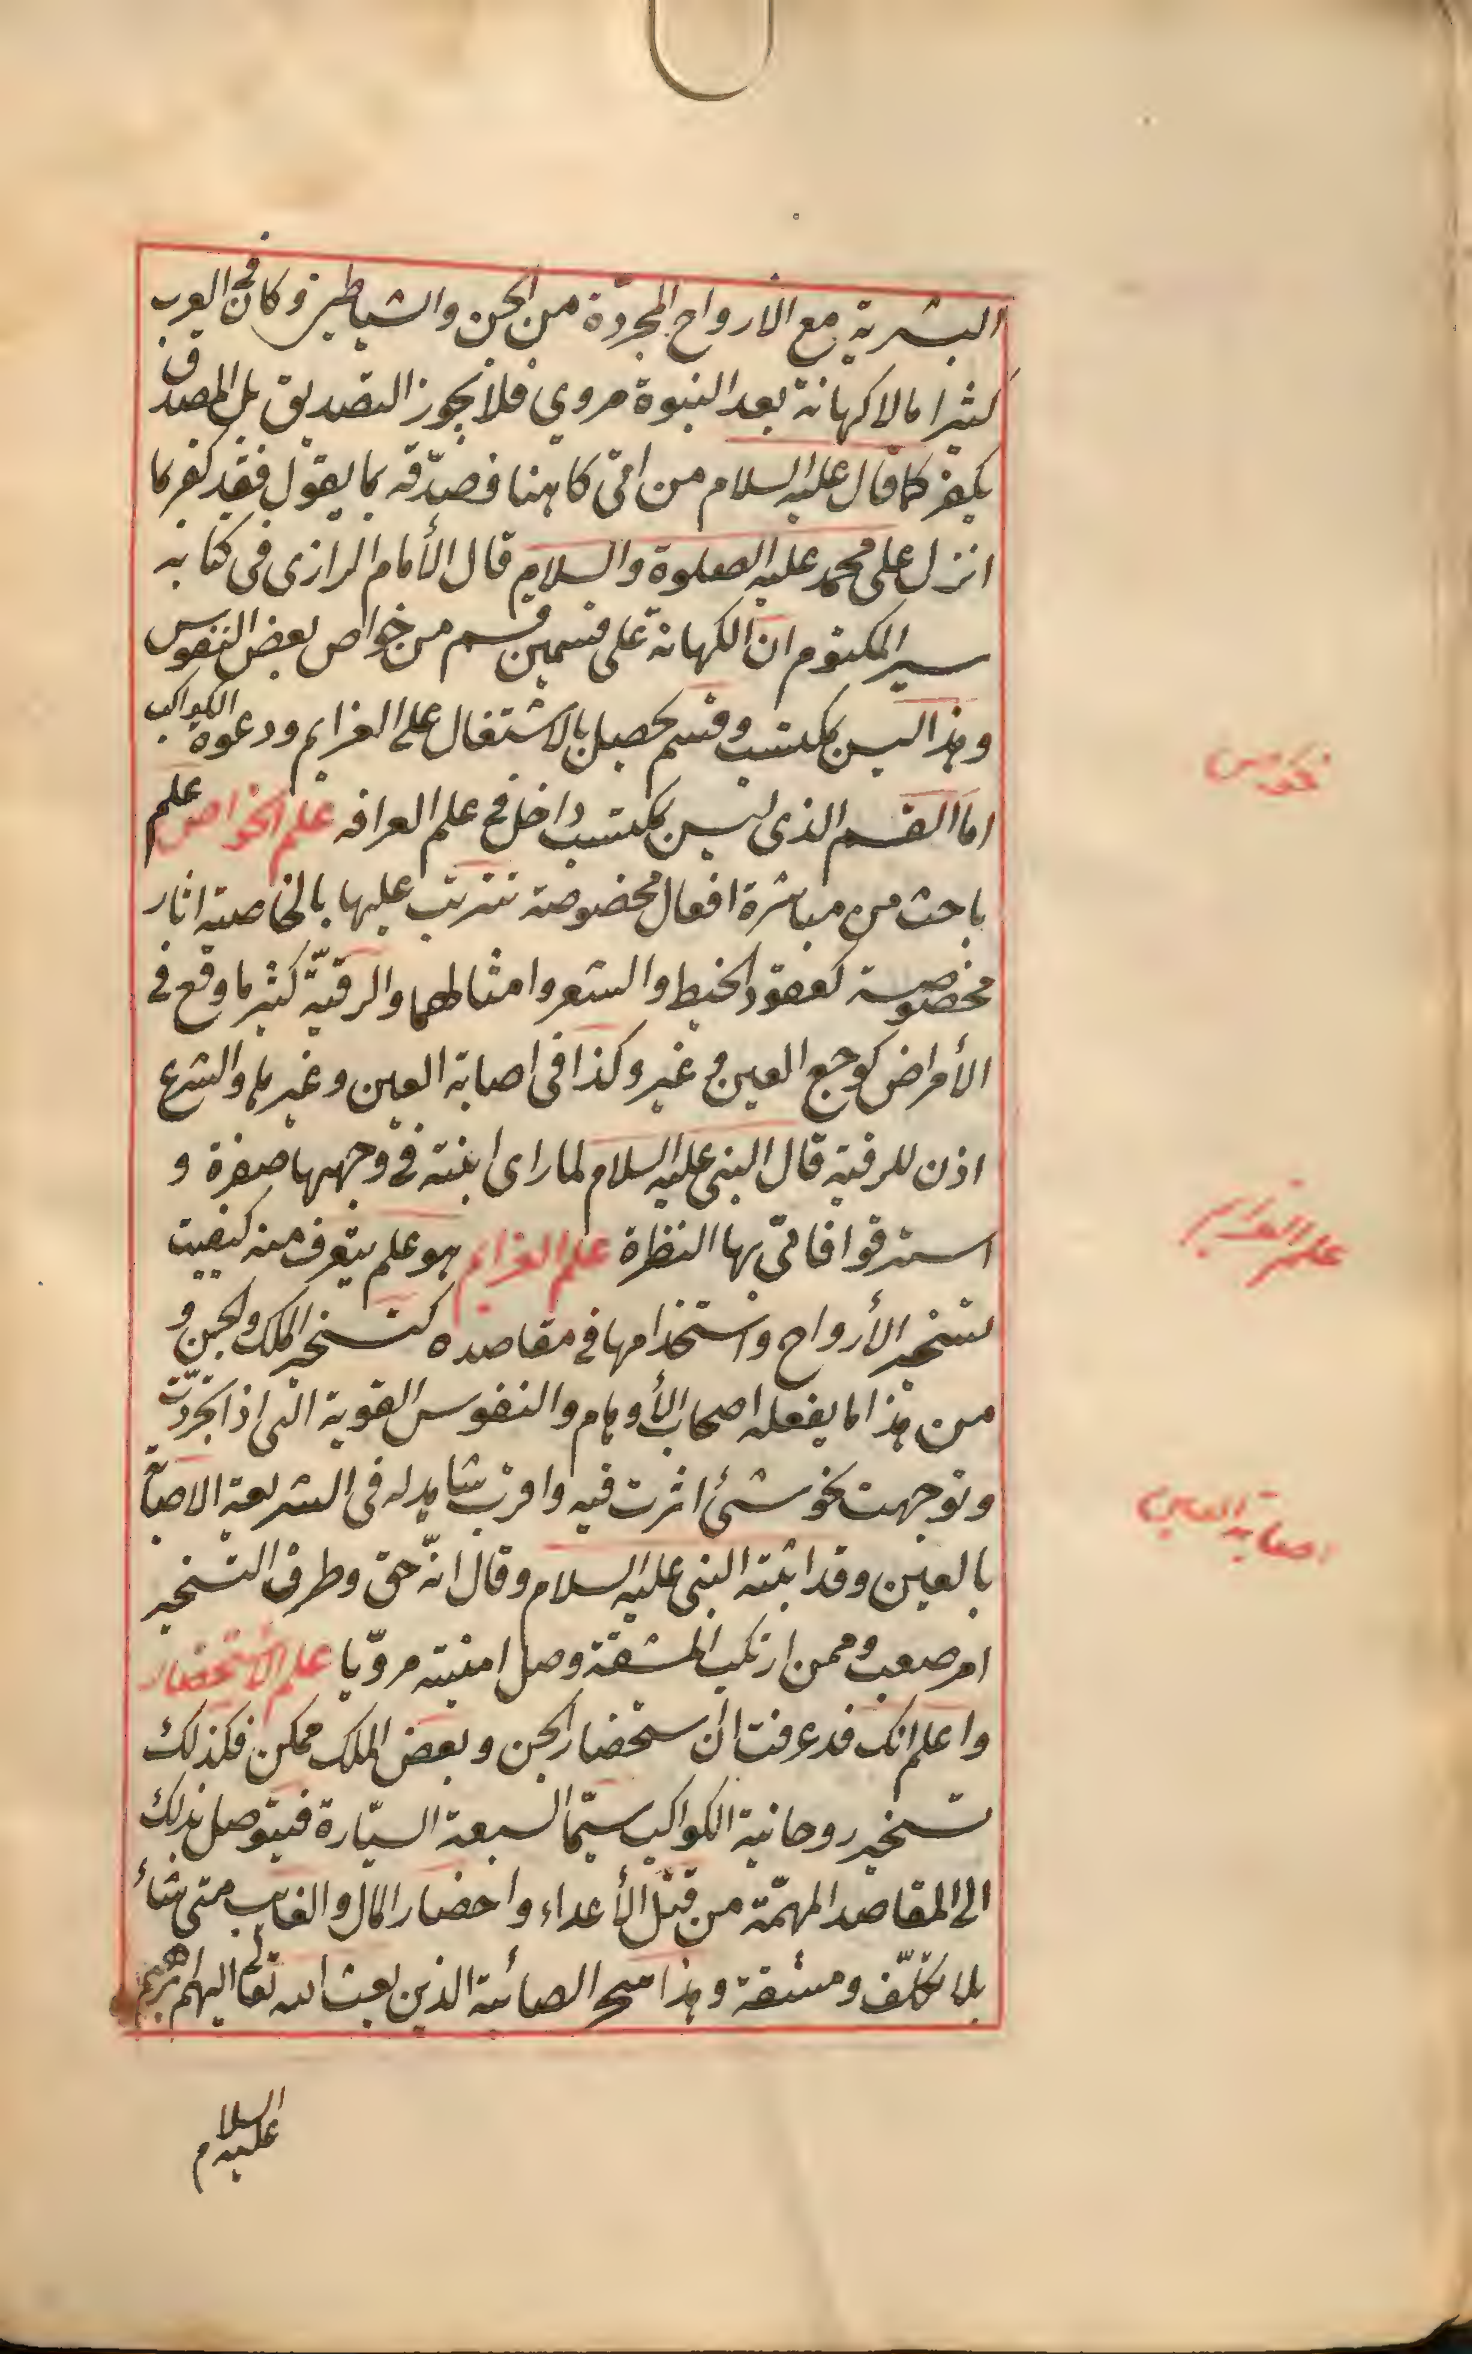 البشرية مع الارواح المجردّة من الجن والشياطين وكان في العرب
كثيرا مالا كهانة بعد النبوة مروي فلا يجوز التصديق بل المصدق
يكفر كما قال عليه السلام من اتى كاهنا فصدّقه بما يقول فقد كفر بما
انزل على محمد عليه الصلوة والسلام قال الأمام الرازى فى كتابه
سر المكتوم ان الكهانة على قسمين قسم من خواص بعض النفوس
وهذا ليس بمكتسب وقسم يحصل بالاشتغال على العزايم ودعوة الكواكب
اما القسم الذى ليس بمكتسب داخل فى علم العرافه علم الخواص علم
باحث من مباشرة افعال مخصوصة تترتب عليها بالخاصية اثار
مخصوصة كعقود الخيط والشعر وامثالهما والرقيّة كثير ما وقع فى
الأمراض كوجع العين و غيره كذا فى اصابة العين وغيرها والشرع
اذن للرقية قال النبى عليه السلام لما راى ابنته فى وجهها صفرة و
استرقوا فانّ بها النظرة علم العزايم هو علم يتعرف منه كيفيت
تسخير الأرواح واستخدامها فى مقاصده كتسخير الملك والجن و
من هذا ما يفعله اصحاب الأوهام والنفوس القوية التى اذا تجردّت
وتوجهت نحو شئ اثرت فيه واقرب شاهد له فى الشريعة الاصابة
بالعين وقد اثبته النبى عليه السلام وقال انّه حق وطرق التسخير
امر صعب وممن ارتكب المشقة وصل امنيته مروّيا علم الأستحضار
واعلم انك قد عرفت ان استحضار الجن وبعض الملك ممكن فكذلك
تسخير روحانية الكواكب سيّما السبعة السيّارة فيتوصل بذلك
الى المقاصد المهمّة من قتل الأعداء واحضار المال والغايب متى شاء
بلا تكلّف ومشقة وهذا سحر الصائبة الذين بعث الله تعالى اليهم ابرهيم
عليه السلام
علم العزايم
اصابة العين